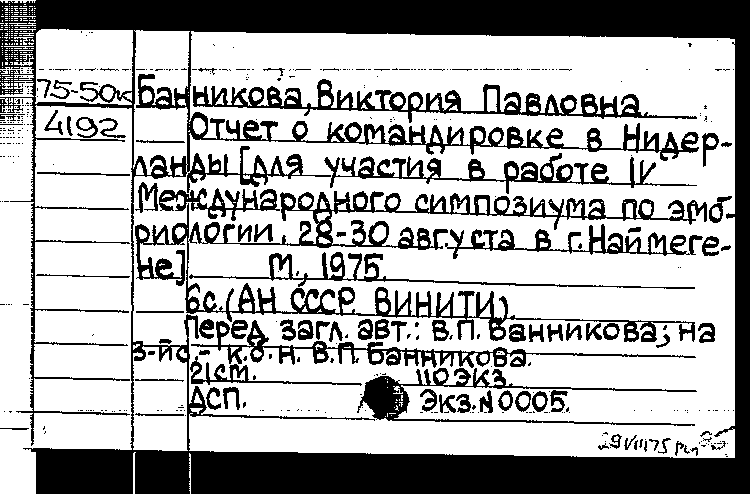 75-50к Банникова, Виктория Павловна.
4192 Отчет о командировке в Нидер-
ланды [для участия в работе IV
Международного симпозиума по эмб-
риологии. 28-30 августа в г. Наймеге-
не]. М., 1975.
6с. (АН СССР. ВИНИТИ).
Перед загл. авт.: В.П. Банникова; на
3-й с.- к.б.н. В.П. Банникова.
21см. 110 экз.
ДСП. Экз.N 0005.
29 VIII 75